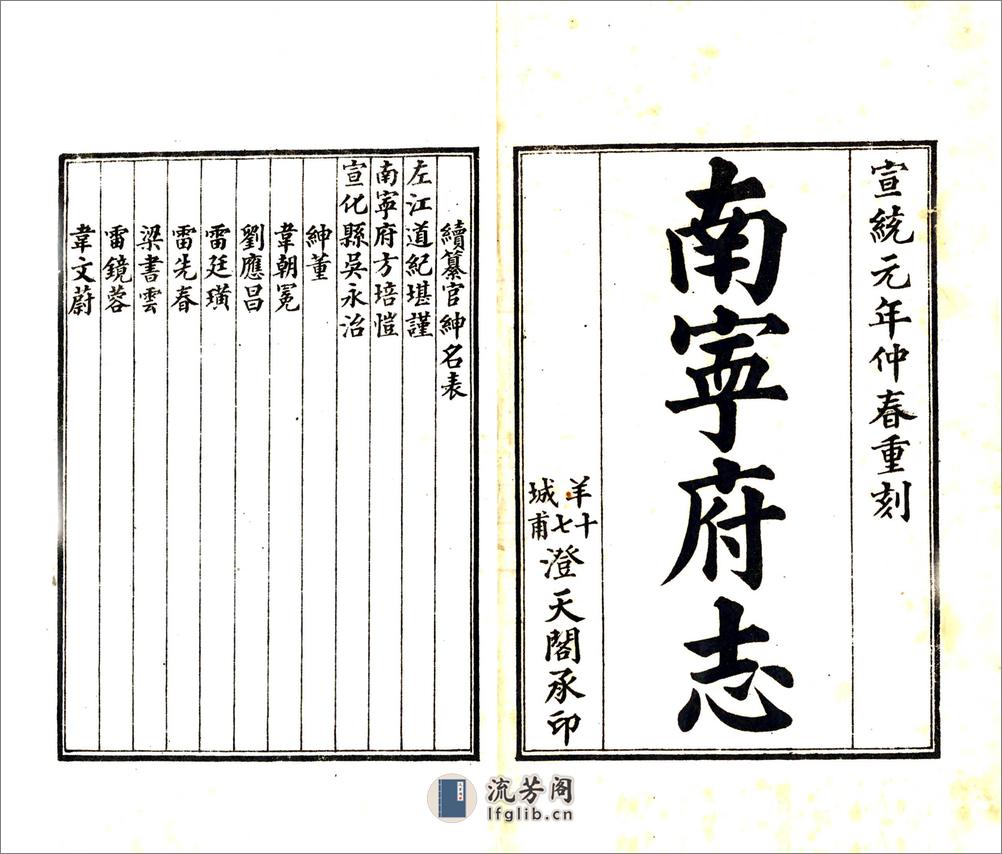 宣統元年仲春重刻
南寧府志
羊城十七甫澄天閣承印
續纂官紳名表
左江道紀堪謹
南寧府方培愷
宣化縣吳永治
紳董
韋朝冕
劉應昌
雷廷璜
雷先春
梁書雲
雷鏡蓉
韋文蔚
流芳阁
lfglib.cn